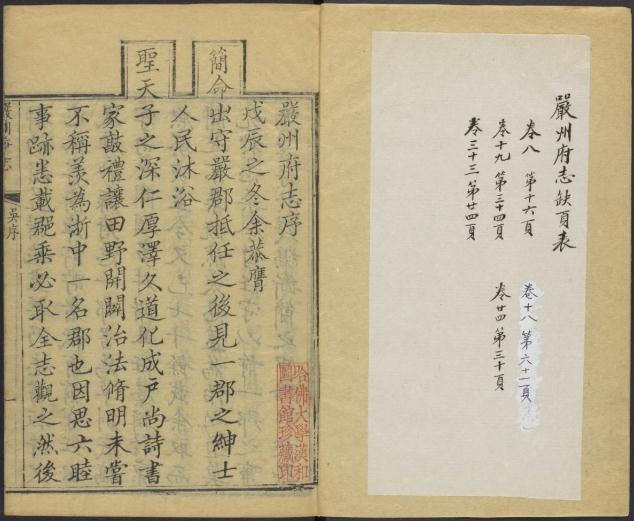 嚴州府志缺頁表
卷八 第十六頁
卷十八 第六十一頁
卷十九 第三十四頁
卷廿四 第三十頁
卷三十三 第廿四頁
嚴州府志序
戊辰之冬余恭膺
簡命出守嚴郡抵任之後見一郡之紳士
人民沐浴
聖天子之深仁厚澤久道化成戸尚詩書
家敲禮讓田野開闢治法脩明未嘗
不稱羡為浙中一名郡也因思六睦
事跡悉載郡乘必取全志觀之然後
哈佛大學漢和
圖書館珍藏印
嚴州府志
吳序
一